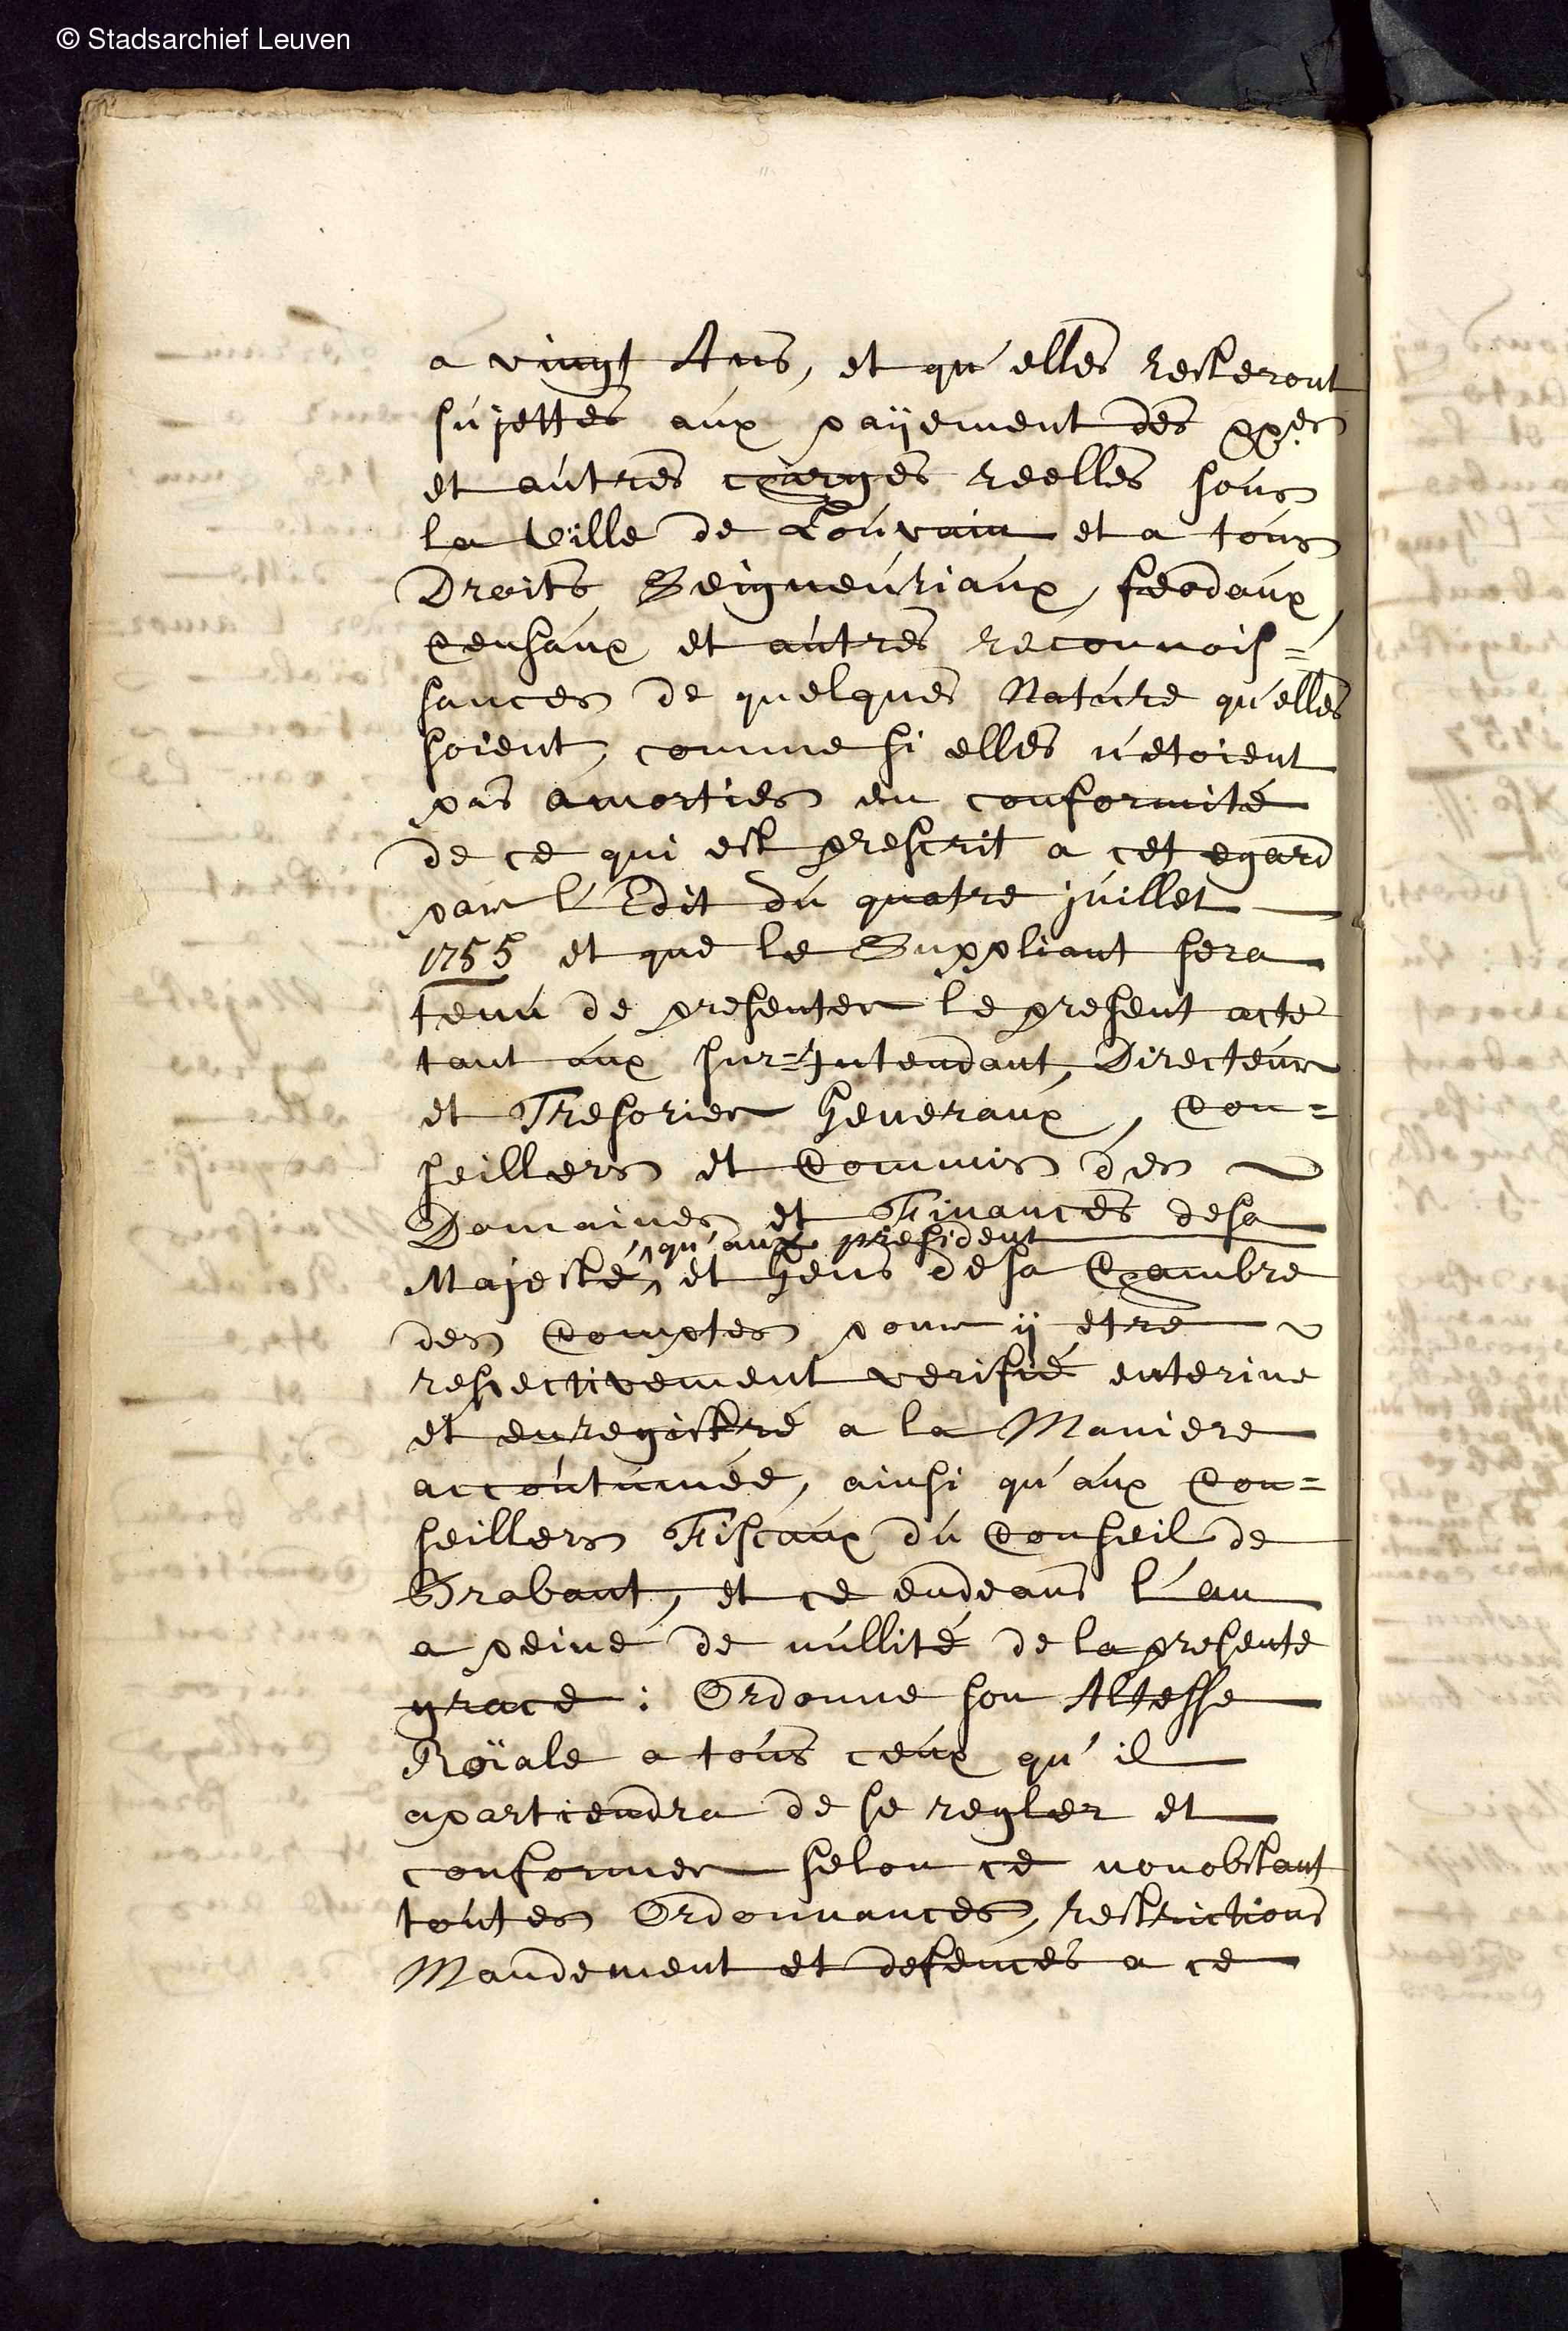 © Stadsarchief Leuven
a vingt Ans, et qu'elles resteront
sujettes aux payement des xx.es
et autres charges reelles sous
la ville de Louvain et a tous
Droits Seigneuriaux, feodaux,
censaux et autres reconnois=
sances de quelques Nature qu'elles
soient, comme si elles n'etoient
pas amorties en conformité
de ce qui est prescrit a cet egard
par l'Edit du quatre juillet
1755 et que le Suppliant sera
tenu de presenter le present acte
tant aux sur=Intendant, Directeur
et Tresorier Generaux, Con=
seillers et Commis des
Domaines et Finances de sa
qu'aux president
Majesté, et Gens de sa Chambre
des Comptes pour ÿ etre
respectivement verifié enterine
et enregistré a la Maniere
accoutumée, ainsi qu'aux Con=
seillers Fiscaux du Conseil de
Brabant, et ce endeans l'an
a peine de nullité de la presente
grace : Ordonne son Altesse
Roïale a tous ceux qu'il
apartiendra de se regler et
conformer selon ce nonobstant
toutes Ordonnances, restrictions
Mandement et defences a ce